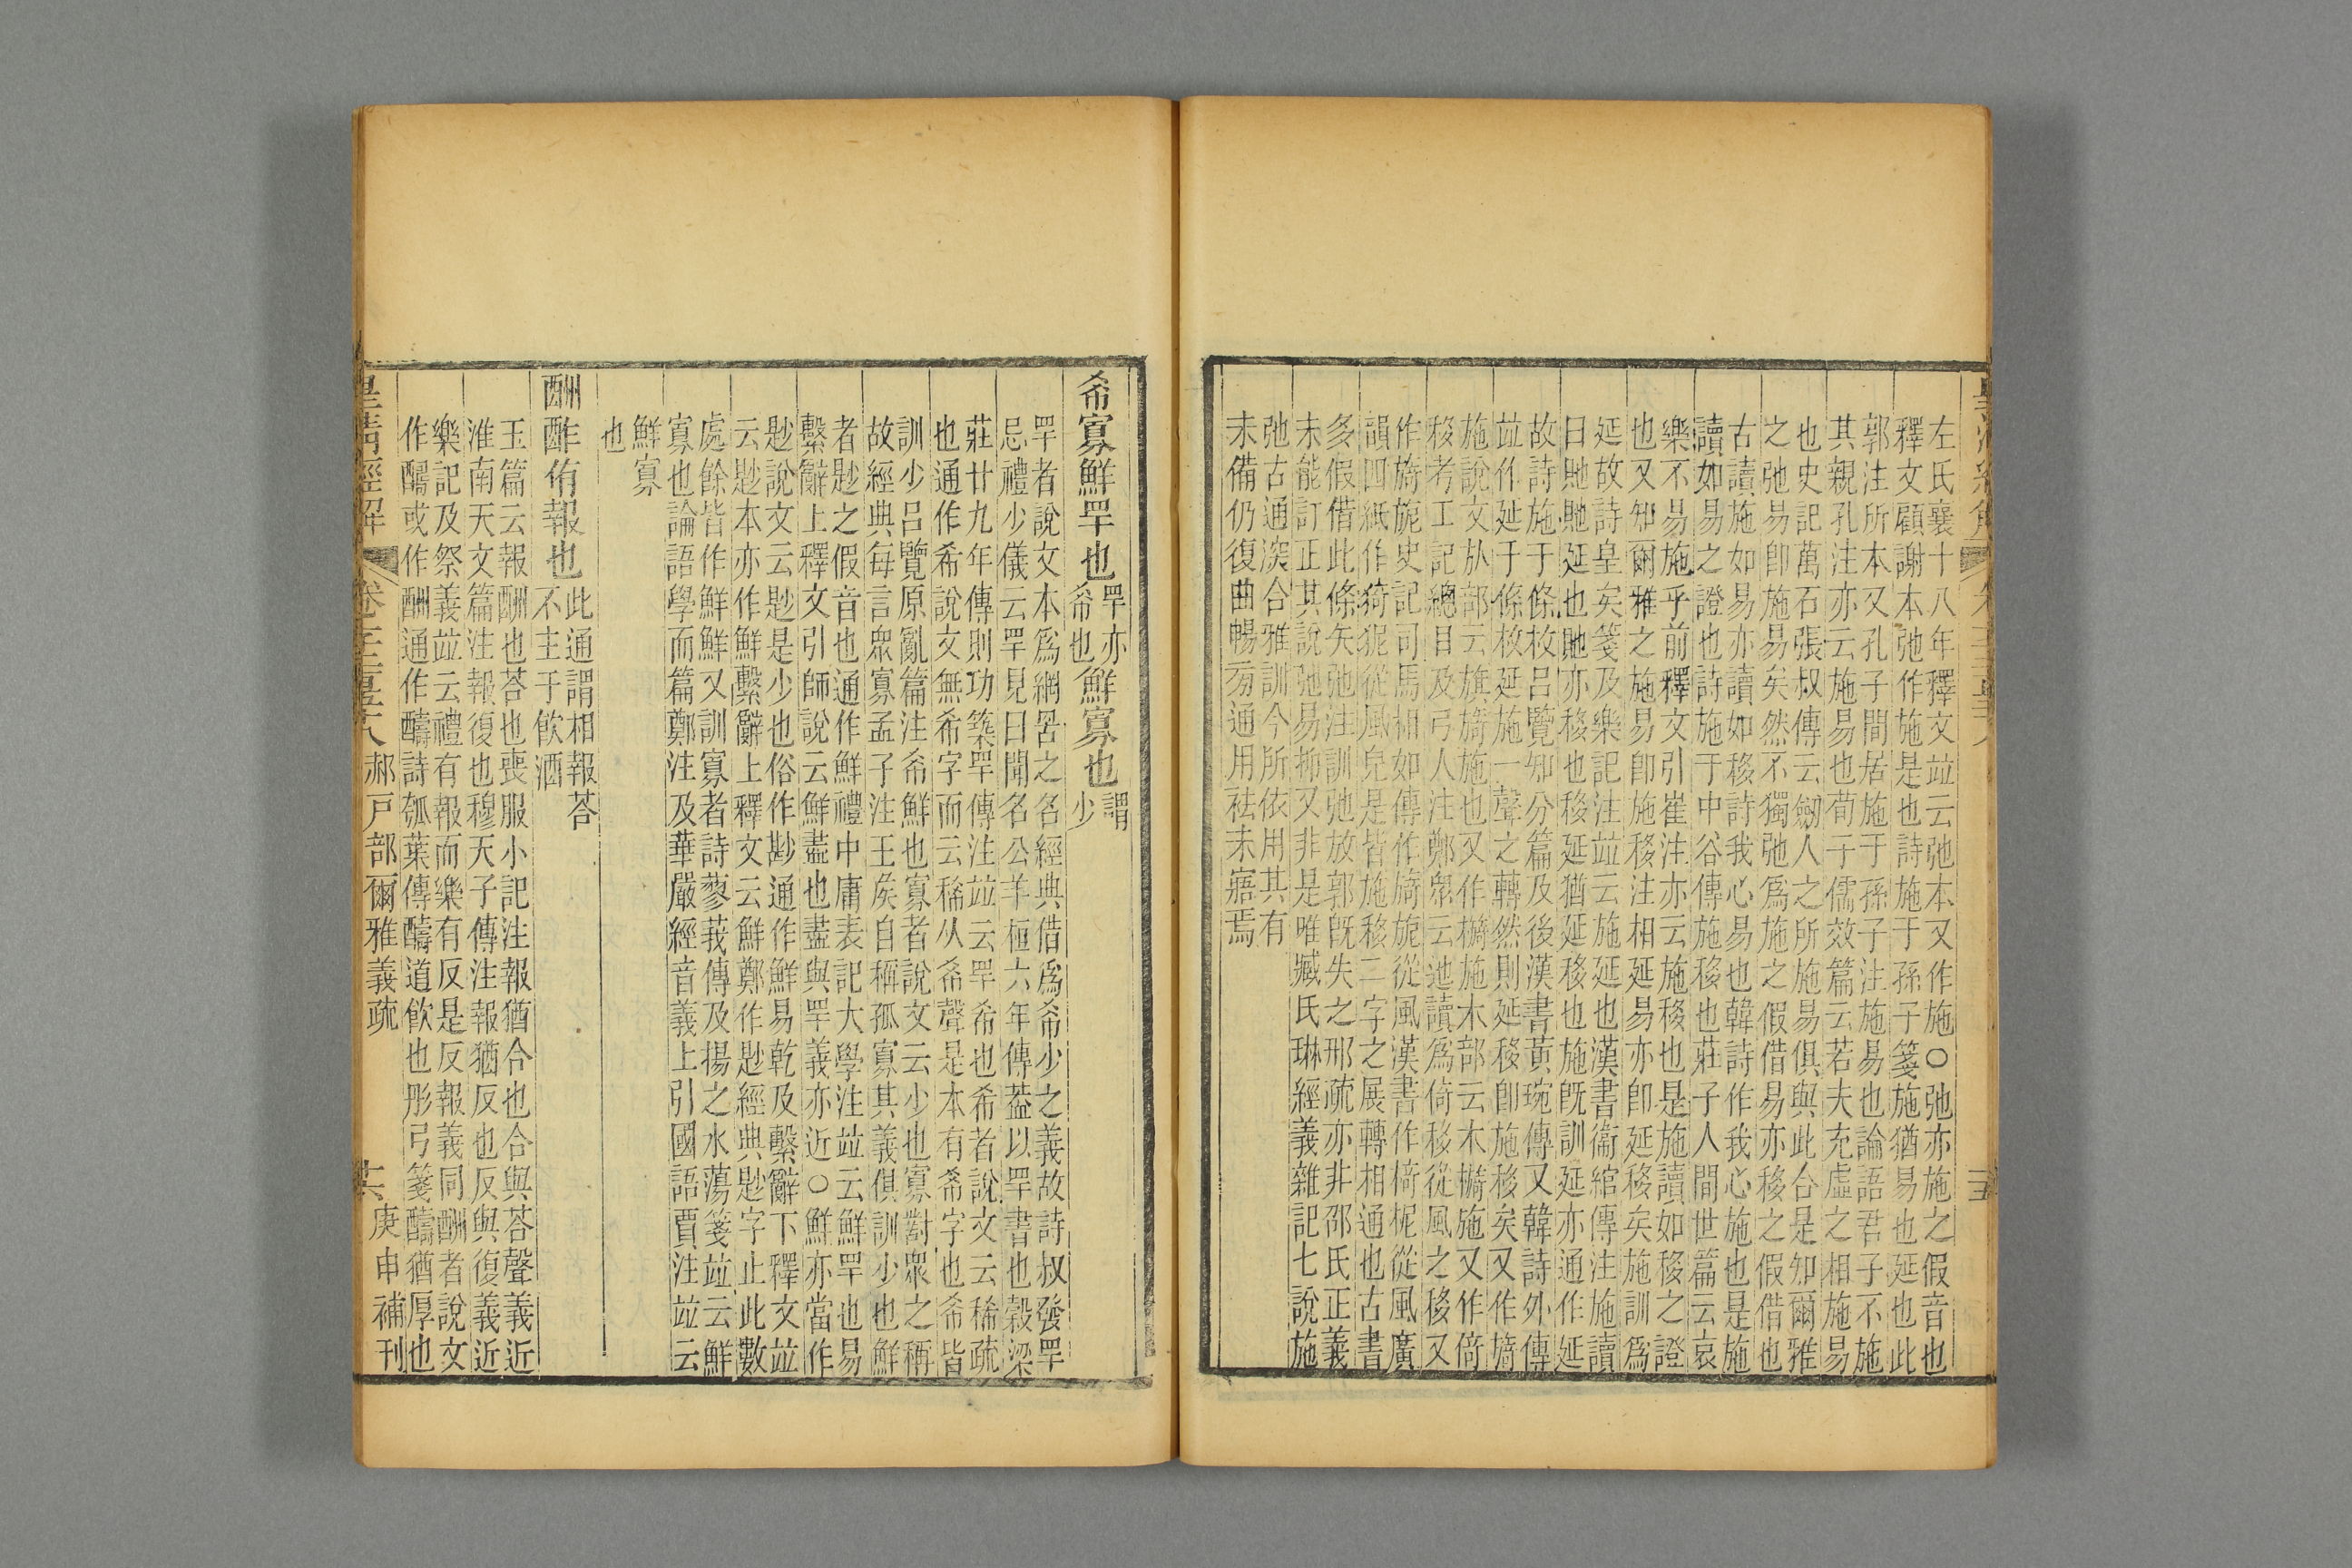 左氏襄十八年釋文竝云弛本又作施○弛亦施之假音也
釋文顧謝本弛作施是也詩施于孫子箋施猶易也延也此
郭注所本又孔子間居施于孫子注施易也論語君子不施
其親孔注亦云施易也荀子儒效篇云若夫充虛之相施易
也史記萬石張叔傳云劒人之所施易俱與此合是知爾雅
之弛易卽施易矣然不獨弛爲施之假借易亦移之假借也
古讀施如易亦讀如移詩我心易也韓詩作我心施也是施
讀如易之證也詩施于中谷傳施移也莊子人間世篇云哀
樂不易施乎前釋文引崔注亦云施移也是施讀如移之證
也又知爾雅之施易卽施移注相延易亦卽延移矣施訓爲
延故詩皇矣箋及樂記注竝云施延也漢書衞綰傳注施讀
曰貤貤延也貤亦移也移延猶延移也施旣訓延亦通作延
故詩施于條枚呂覽知分篇及後漢書黃琬傳又韓詩外傳
竝作延于條枚延施一聲之轉然則延移卽施移矣又作旖
施說文㫃部云旗旖施也又作檹施木部云木檹施又作倚
移考工記總目及弓人注鄭衆云迆讀爲倚移從風之移又
作旖旎史記司馬相如傳作旖旎從風漢書作倚柅從風廣
韻四紙作猗狔從風皃是皆施移二字之展轉相通也古書
多假借此條矢弛注訓弛放郭旣失之邢疏亦非邵氏正義
未能訂正其說弛易抑又非是唯臧氏琳經義雜記七說施
弛古通㴱合雅訓今所依用其有
未備仍復曲暢㫄通用袪未寤焉
希寡鮮罕也罕亦希也鮮寡也謂少
罕者說文本爲網罟之名經典借爲希少之義故詩叔發罕
忌禮少儀云罕見曰聞名公羊桓六年傳蓋以罕書也穀梁
莊廿九年傳則功築罕傳注竝云罕希也希者說文云稀疏
也通作希說文無希字而云稀从希聲是本有希字也希皆
訓少呂覽原亂篇注希鮮也寡者說文云少也寡對衆之稱
故經典每言衆寡孟子注王矦自稱孤寡其義俱訓少也鮮
者尟之假音也通作鮮禮中庸表記大學注竝云鮮罕也易
繫辭上釋文引師說云鮮盡也盡與罕義亦近○鮮亦當作
尟說文云尟是少也俗作尠通作鮮易乾及繫辭下釋文竝
云尟本亦作鮮繫辭上釋文云鮮鄭作尟經典尟字止此數
處餘皆作鮮鮮又訓寡者詩蓼莪傳及揚之水蕩箋竝云鮮
寡也論語學而篇鄭注及華嚴經音義上引國語賈注竝云
鮮寡
也
酬酢侑報也此通謂相報荅不主于飮酒
玉篇云報酬也荅也喪服小記注報猶合也合與荅聲義近
淮南天文篇注報復也穆天子傳注報猶反也反與復義近
樂記及祭義竝云禮有報而樂有反是反報義同酬者說文
作醻或作酬通作醻詩瓠葉傳醻道飮也彤弓箋醻猶厚也
皇淸經解 卷千二百五十八 郝戸部爾雅義疏 庚申補刊